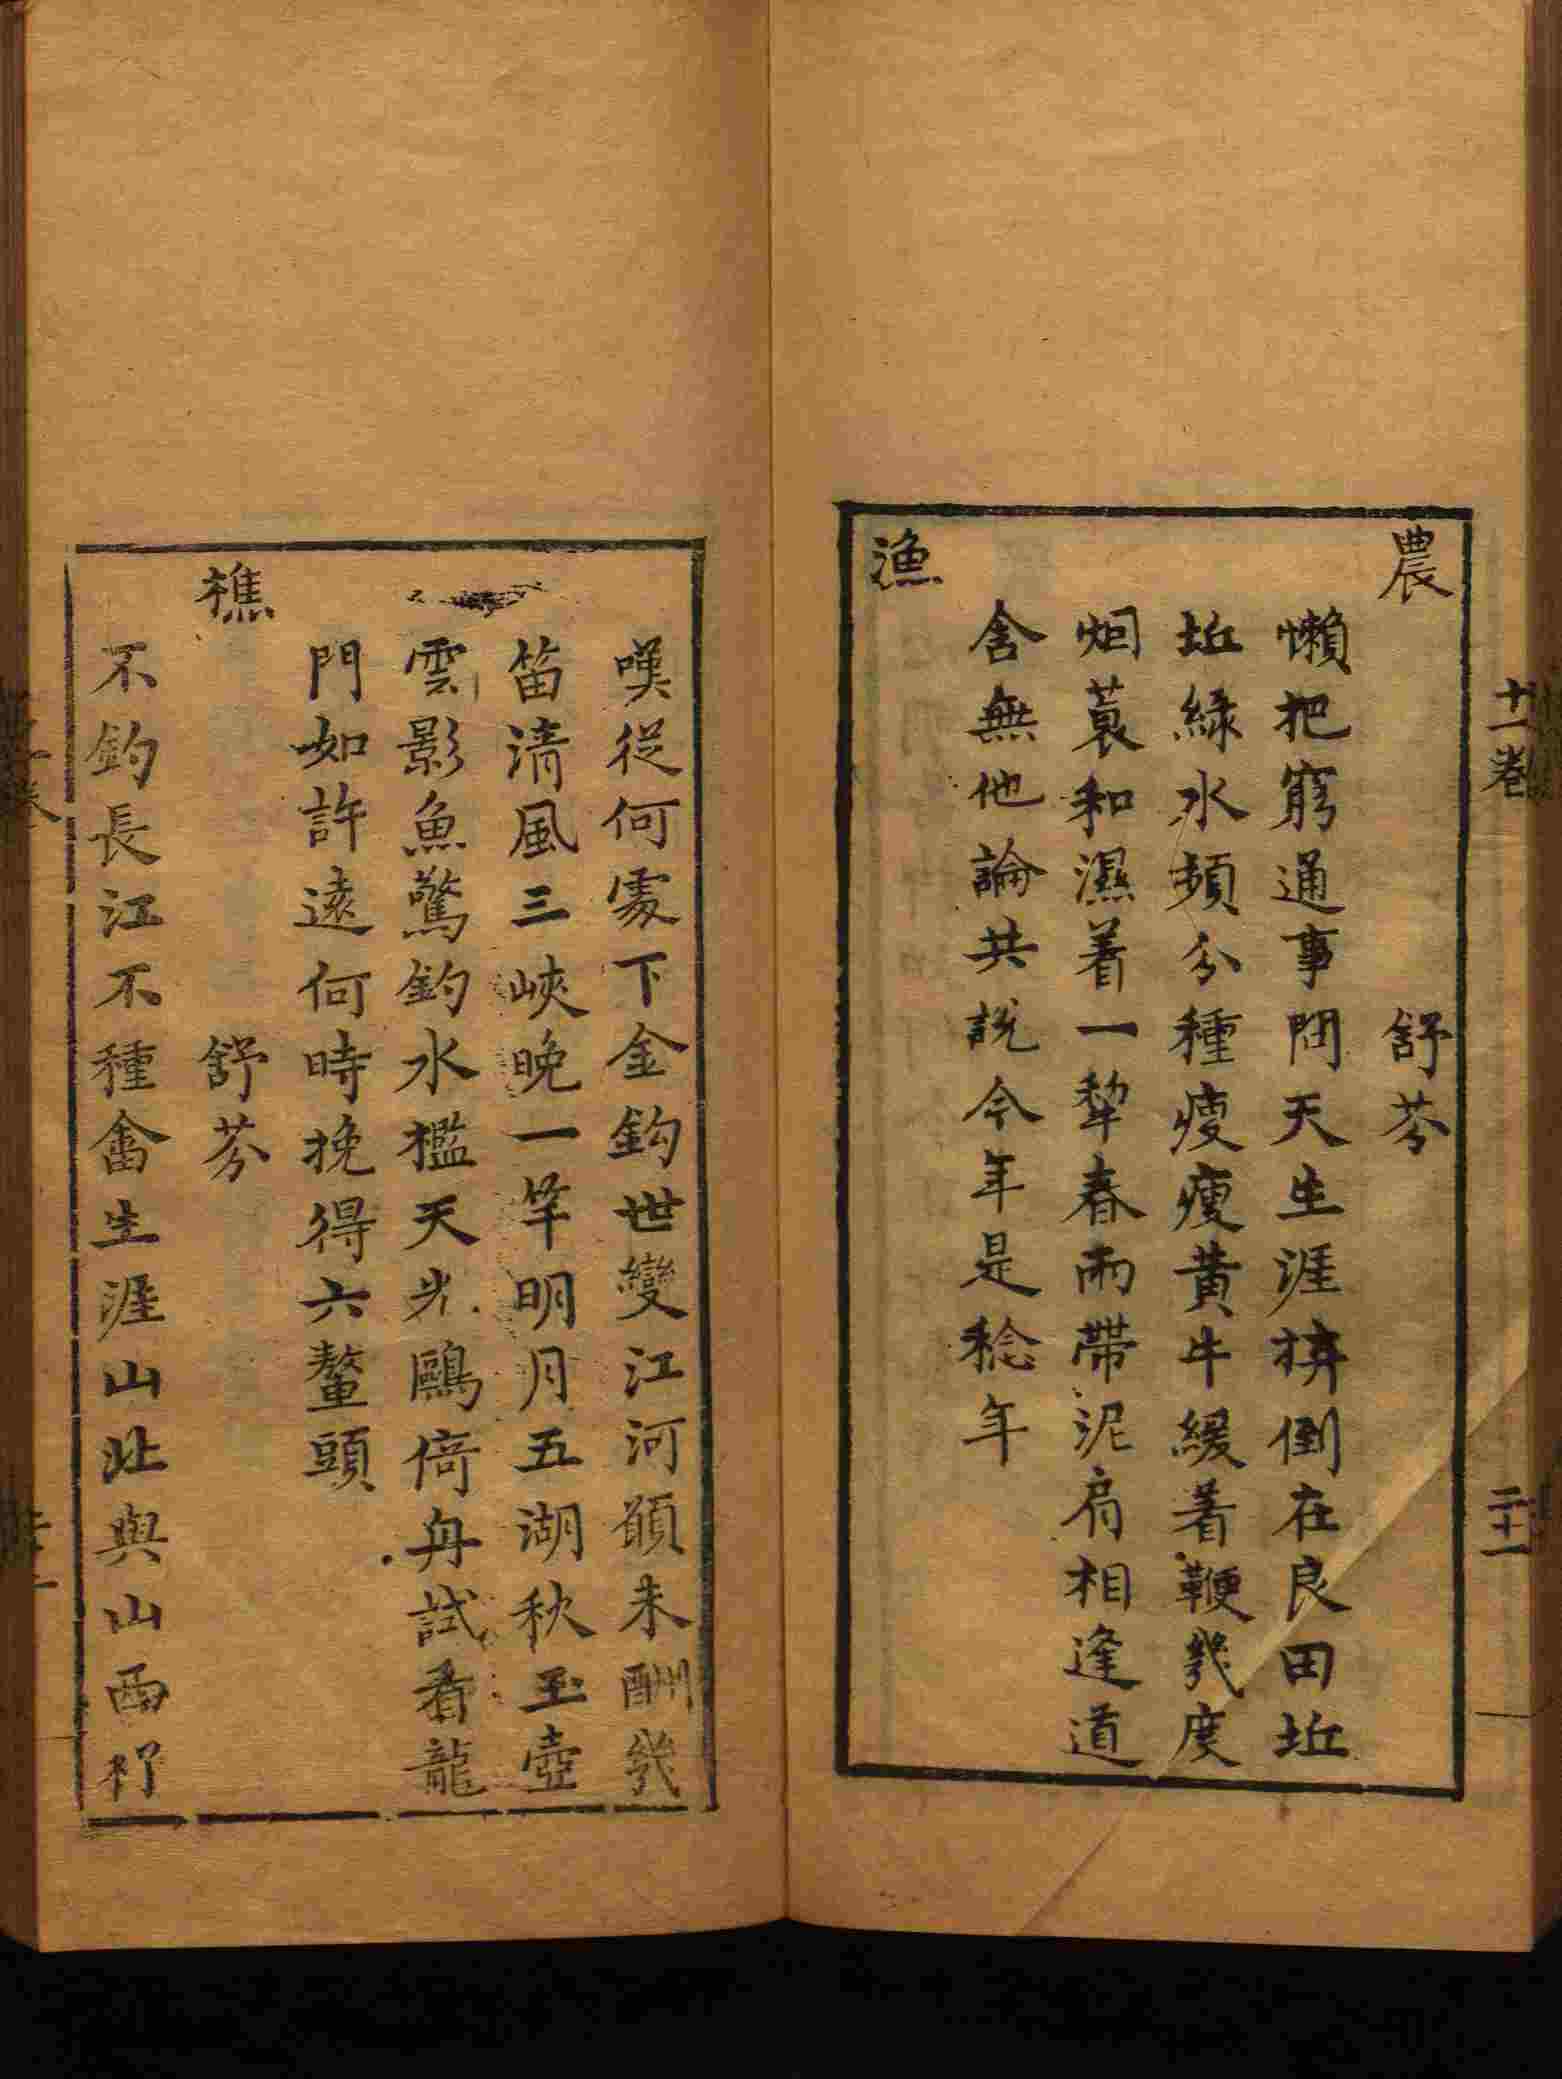 十一卷
二十一
農
舒芬
懶把窮通事問天生涯擠倒在良田坵
坵綠水頻分種瘦瘦黃牛緩着鞭幾度
烟蓑和濕着一犂春雨帶泥肩相逢道
舍無他論共說今年是稔年
漁
嘆從何處下金鈎世變江河願未酬幾
笛清風三峽晚一竿明月五湖秋玉壺
雲影魚驚釣水檻天光鷗倚舟試看龍
門如許遠何時挽得六鼇頭
樵
舒芬
不釣長江不種畬生涯山北與山西